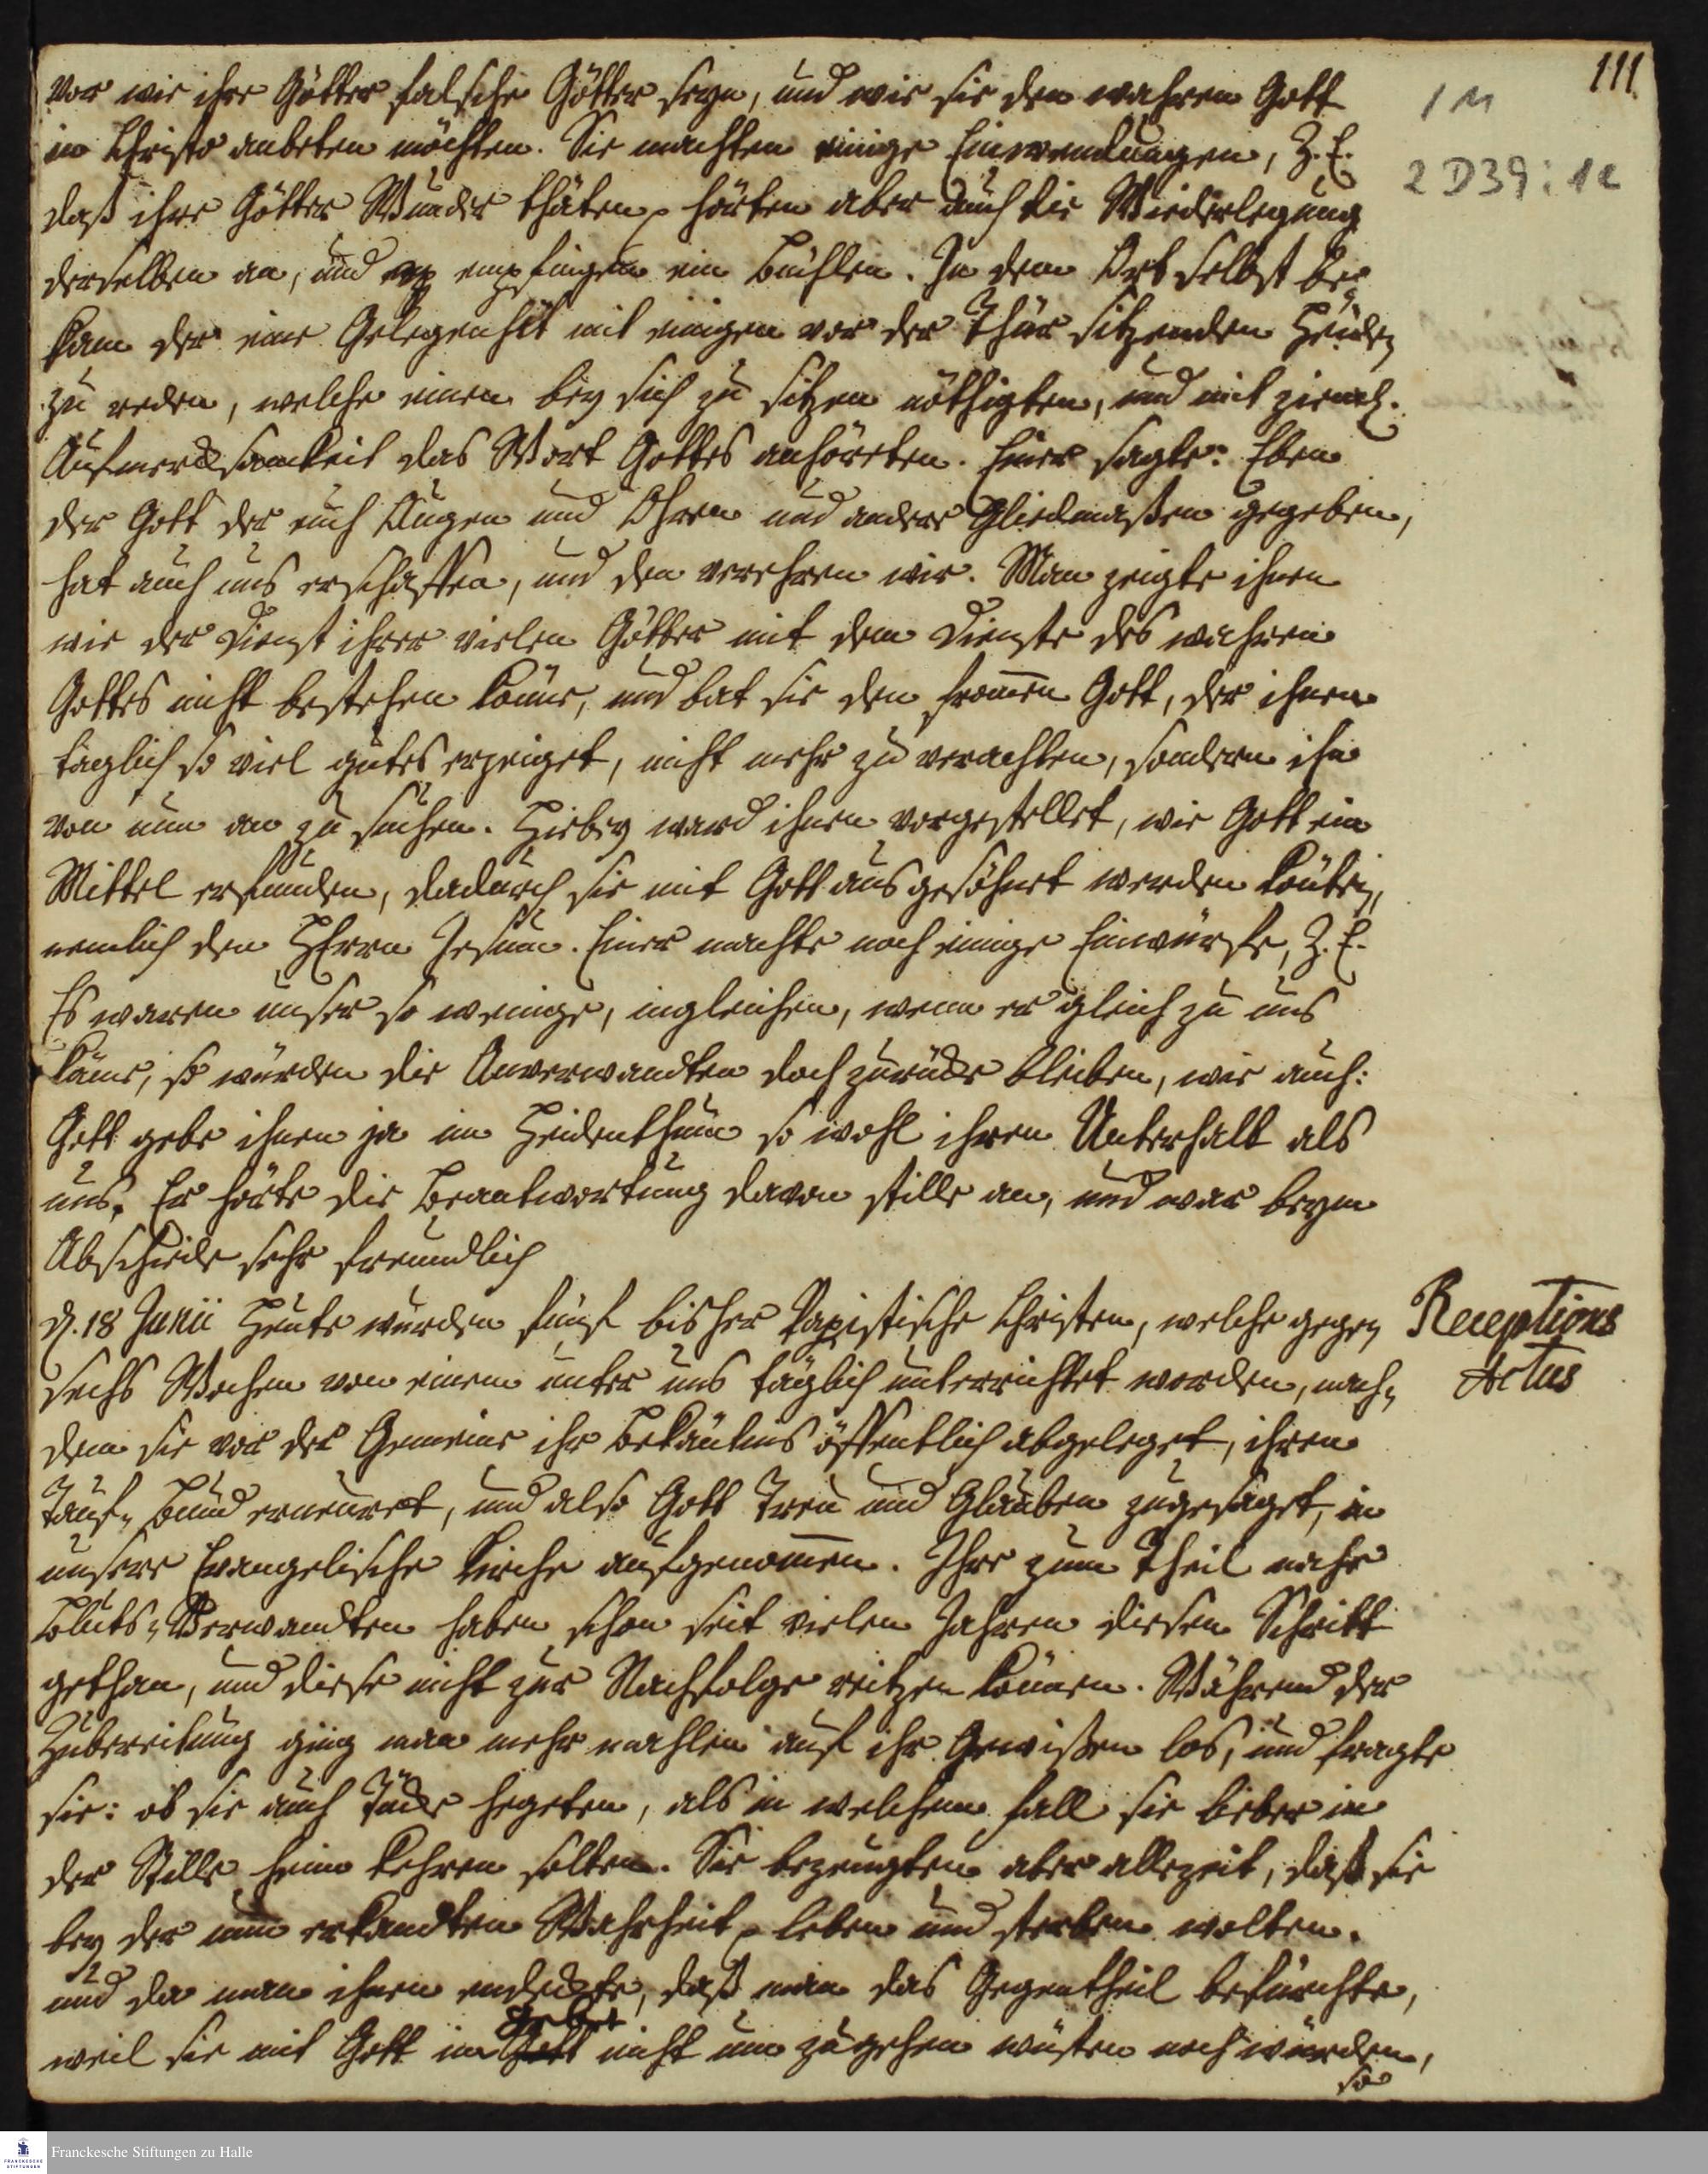 111
1 M
2 D39: 12
vor wie ihre Götter falsche Götter seyn, und wie sie den wahren Gott
in Christo anbeten möchten. Sie machten einige Einwendungen, Z. E.
daß ihre Götter Wunder thäten, hörten aber auch die Wiederlegung
derselben an, und empfingen ein Büchlen. In dem Ort selbst be
kam der eine Gelegenheit mit einigen vor der Thür sitzenden Heiden
zu reden, welche einen bey sich zu sitzen nöthigten, und mit zieml.
Aufmercksamkeit das Wort Gottes anhöreten. Einer sagte: Eben
der Gott der euch Augen und Ohren und andere Gliedmaßen gegeben,
hat auch uns erschaffen, und den verehren wir. Man zeigte ihnen
wie der Dienst ihrer vielen Götter mit dem Dienste des wahren
Gottes nicht bestehen könne, und bat sie den frommen Gott, der ihnen
täglich so viel gutes erzeiget, nicht mehr zu verachten, sondern ihn
von nun an zu suchen. Hiebey ward ihnen vorgestellet, wie Gott ein
Mittel erfunden, dadurch sie mit Gott ausgesöhnt werden könten,
nemlich den HErrn Jesum. Einer machte noch einige Einwürfe, Z. E.
Es waren unser so wenige, ingleichen, wenn er gleich zu uns
käme, so würden die Anverwandten doch zurücke bleiben, wie auch:
Gott gebe ihnen ja im Heidenthum so wohl ihren Unterhalt als
uns. Er hörte die Beantwortung davon stille an, und war beym
Abschiede sehr freundlich
d. 18 Junii Heute wurden fünf bisher Papistische Christen, welche gegen
Receptions
sechs Wochen von einem unter uns täglich unterrichtet worden, nach-
Actus
dem sie vor der Gemeine ihr Bekäntnis öffentlich abgeleget, ihren
Tauf-Bund erneuret, und also Gott Treu und Glauben zugesaget, in
unsere Evangelische Kirche aufgenommen. Ihre zum Theil nahe
Bluts-Verwandten haben schon seit vielen Jahren diesen Schritt
gethan, und diese nicht zur Nachfolge reitzen können. Während der
Zubereitung ging man mehrmahlen auf ihr Gewißen los, und fragte
sie: ob sie auch Tücke hegeten, als in welchem fall sie lieber in
der Stille heim kehren solten. Sie bezeugten aber allezeit, daß sie
bey der nun erkandten Wahrheit leben und sterben wolten.
und da man ihnen endeckte, daß man das Gegentheil befürchte,
weil sie mit Gott im Gebet nicht um zugehen wüsten noch würden,
so
Franckesche Stiftungen zu Halle